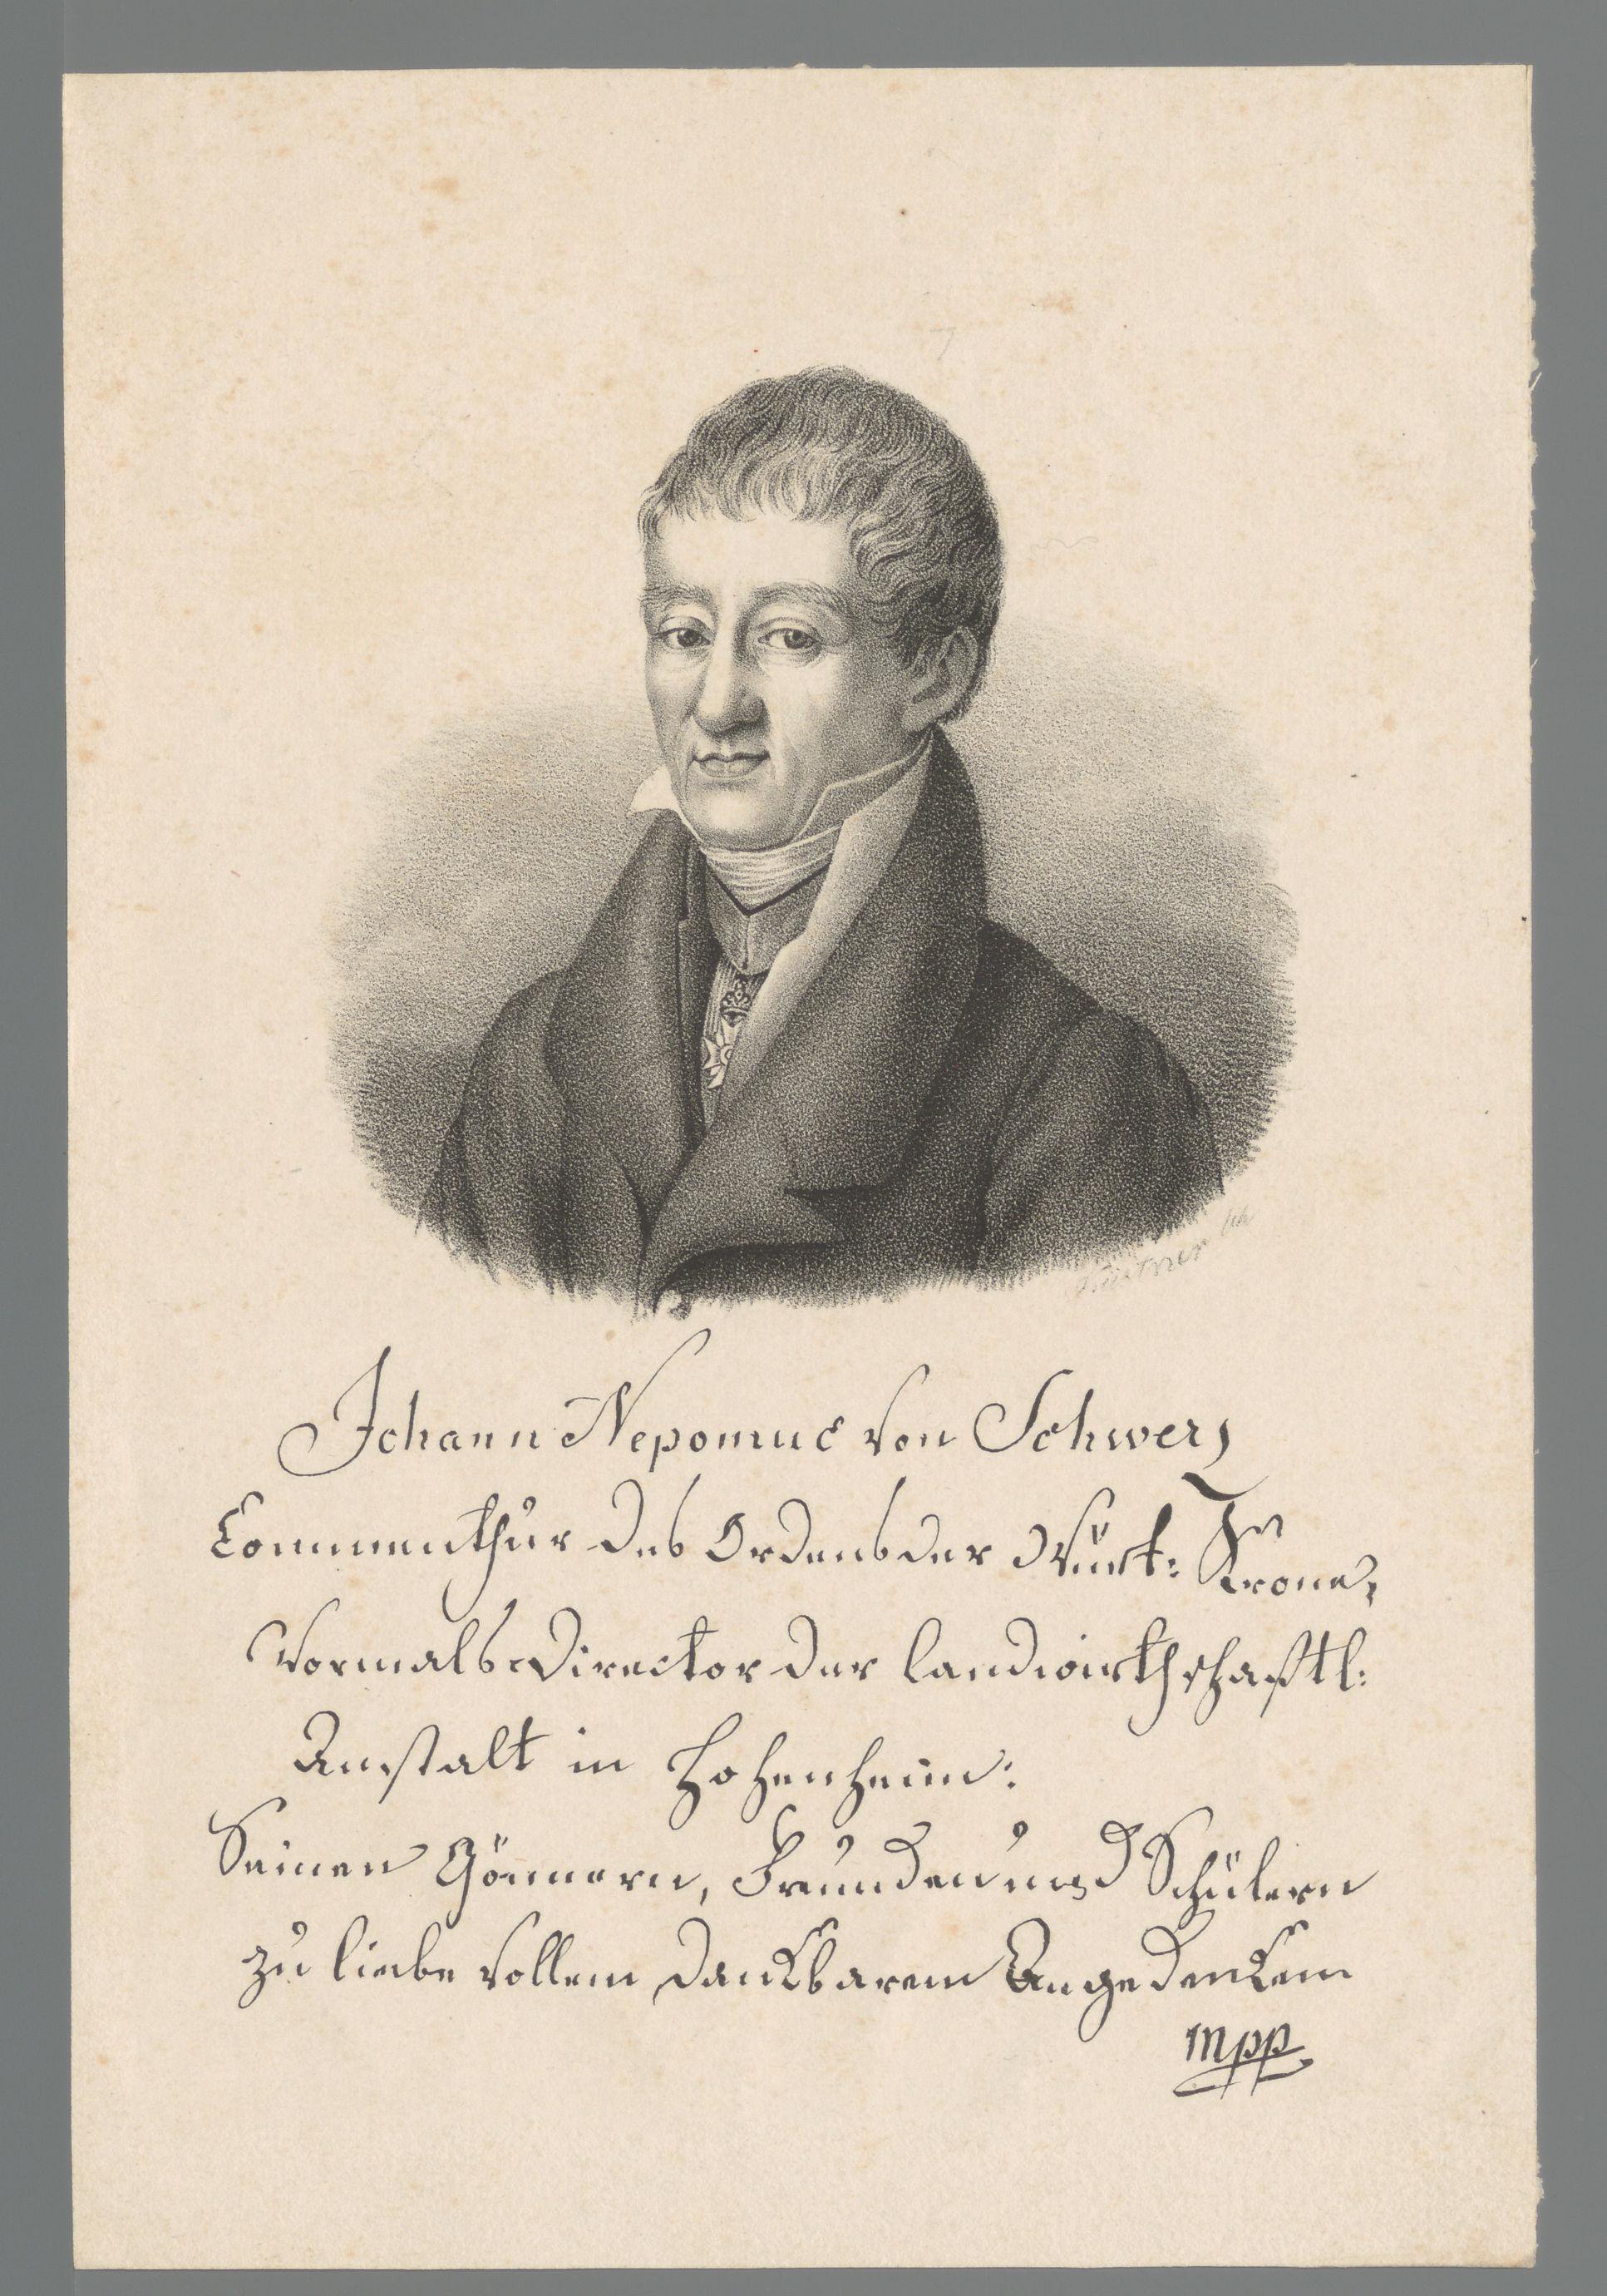 lith
Johann Nepomuc von Schwerz
Commenthur des Ordens der Würt: Krone,
Vormals Director der landwirthschaftl:
Anstalt in Hohenheim:
Seinen Gönnern, Freunden und Schülern
zu liebe vollem dankbarem Angedenken
mpp.